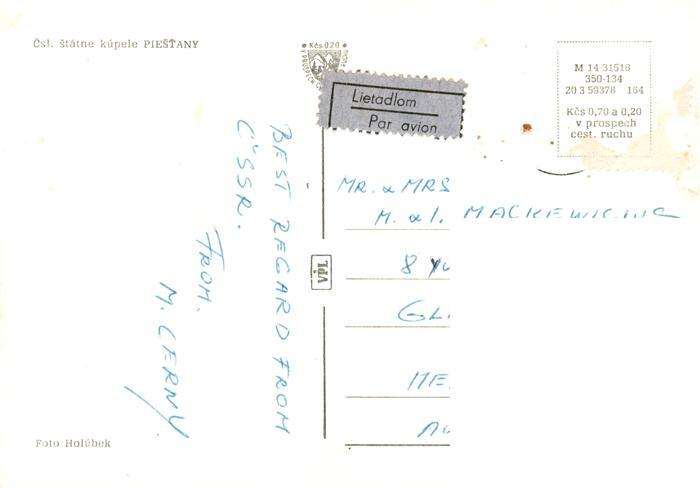 Čsl. štátne kúpele PIEŠŤANY
Kčs 0.20
Lietadlom
Par avion
M 14 31516
350-134
20 3 59378 164
Kčs 0,70 a 0,20
v prospech
cest. ruchu
BEST REGARD FROM
ČSSR.
FROM.
M. CERNY.
VPL
MR. & MRS
M. & I. MACKEWICIUS
8
GL
ME
Foto Holúbek